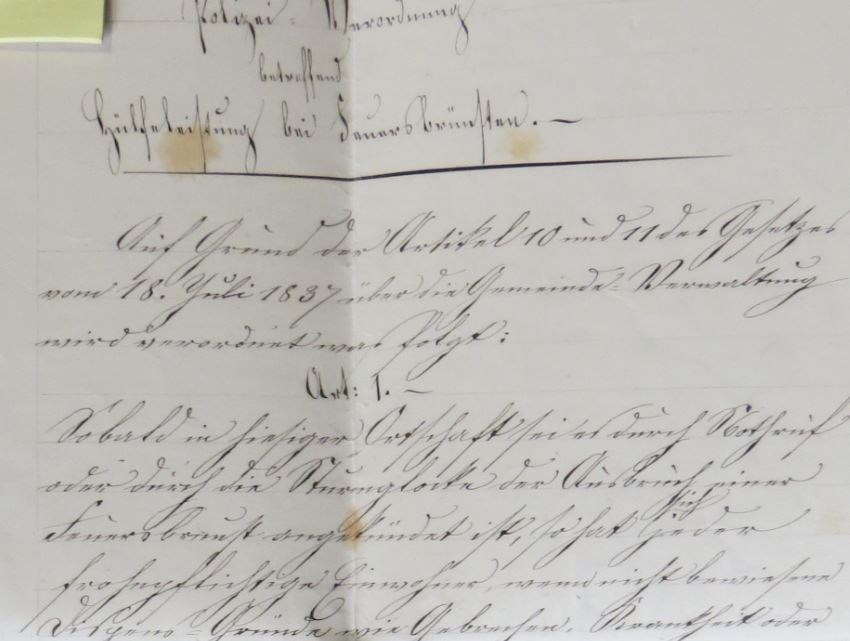 Polizei-Verordnung
betreffend
Hülfeleistung bei Feuersbrünsten. —
Auf Grund der Artikel 10 und 11 des Gesetzes
vom 18. Juli 1837 über die Gemeinde-Verwaltung
wird verordnet was folgt:
Art: 1. —
Sobald in hiesiger Ortschaft sei es durch Nothruf
oder durch die Sturmglocke der Ausbruch einer
Feuersbrunst angekündet ist, so hat sich jeder
frohnpflichtige Einwohner, wenn nicht bewiesene
Dispens-Gründe wie Gebrechen, Krankheit oder